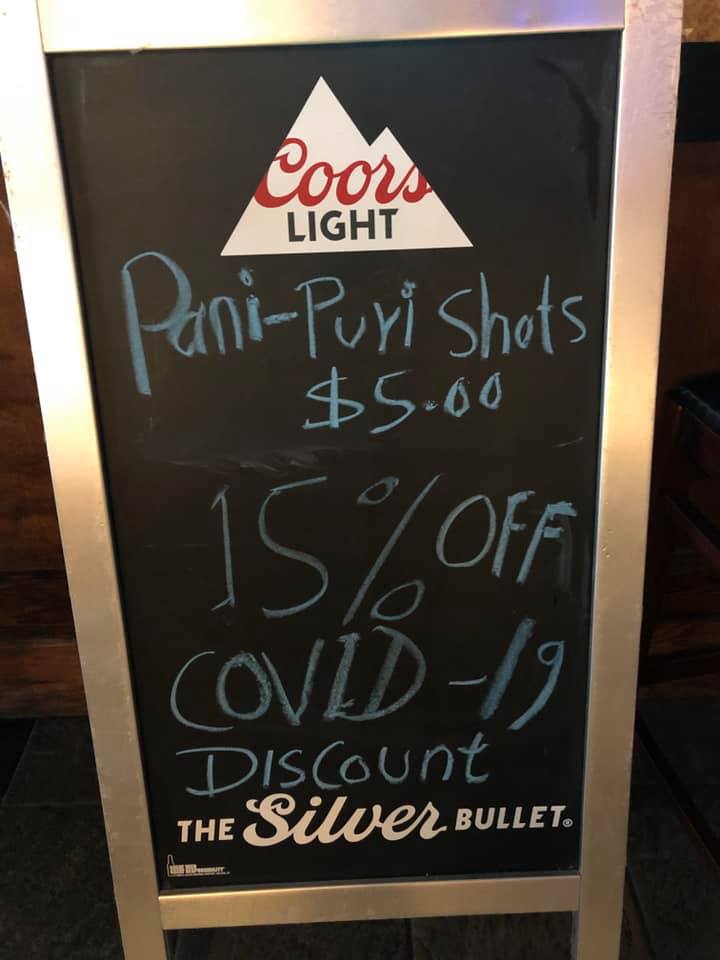 Coors
LIGHT
Pani-Puri Shots
$5.00
15% OFF
COVID-19
DISCount
THE Silver BULLET®